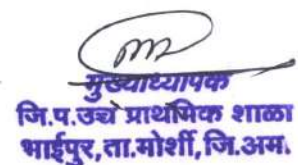 मुख्याध्यापक
जि.प.उच्च प्राथमिक शाळा
भाईपुर,ता.मोर्शी,जि.अम.